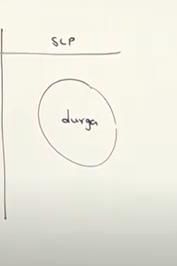 SLP
durga